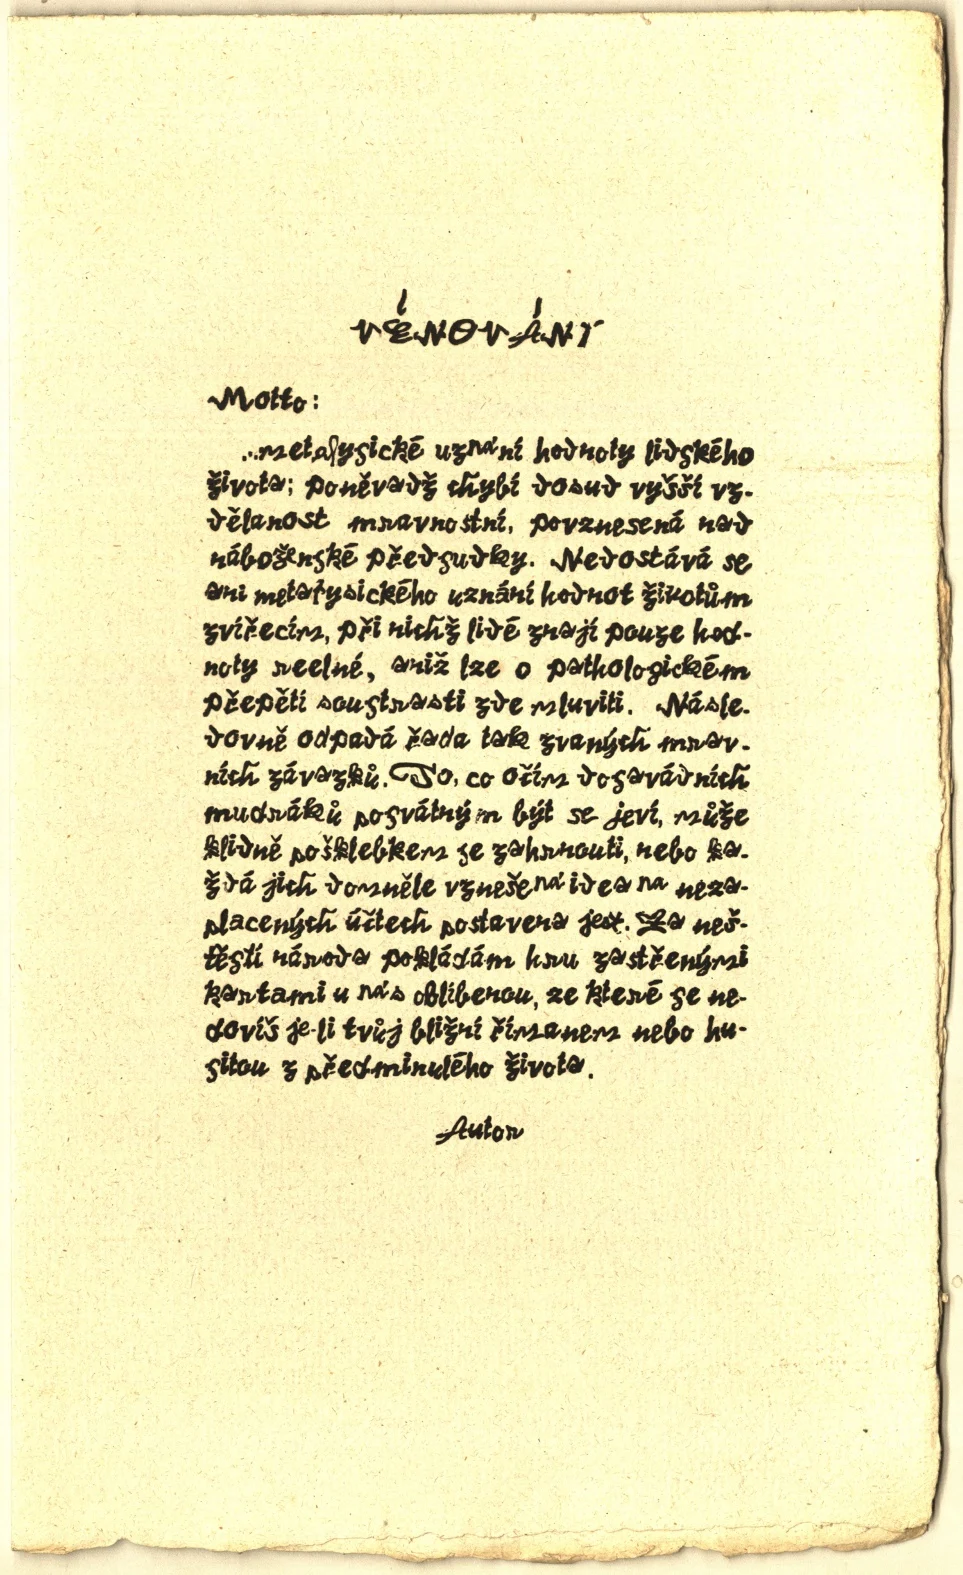 VĚNOVÁNÍ
Motto:
...metafysické uznání hodnoty lidského
života; poněvadž chybí dosud vyšší vz-
dělanost mravnostní, povznesená nad
náboženské předsudky. Nedostává se
ani metafysického uznání hodnot životům
zvířecím, při nichž lidé znají pouze hod-
noty reelné, aniž lze o pathologickém
přepětí soustrasti zde mluviti. Násle-
dovně odpadá řada tak zvaných mrav-
ních závazků. To, co očím dosavádních
mudráků posvátným být se jeví, může
klidně pošklebkem se zahrnouti, nebo ka-
ždá jich domněle vznešená idea na neza-
placených účtech postavena jest. Za neš-
těstí národa pokládám hru zastřenými
kartami u nás oblíbenou, ze které se ne-
dovíš je-li tvůj bližní římanem nebo hu-
sitou z předminulého života.
Autor